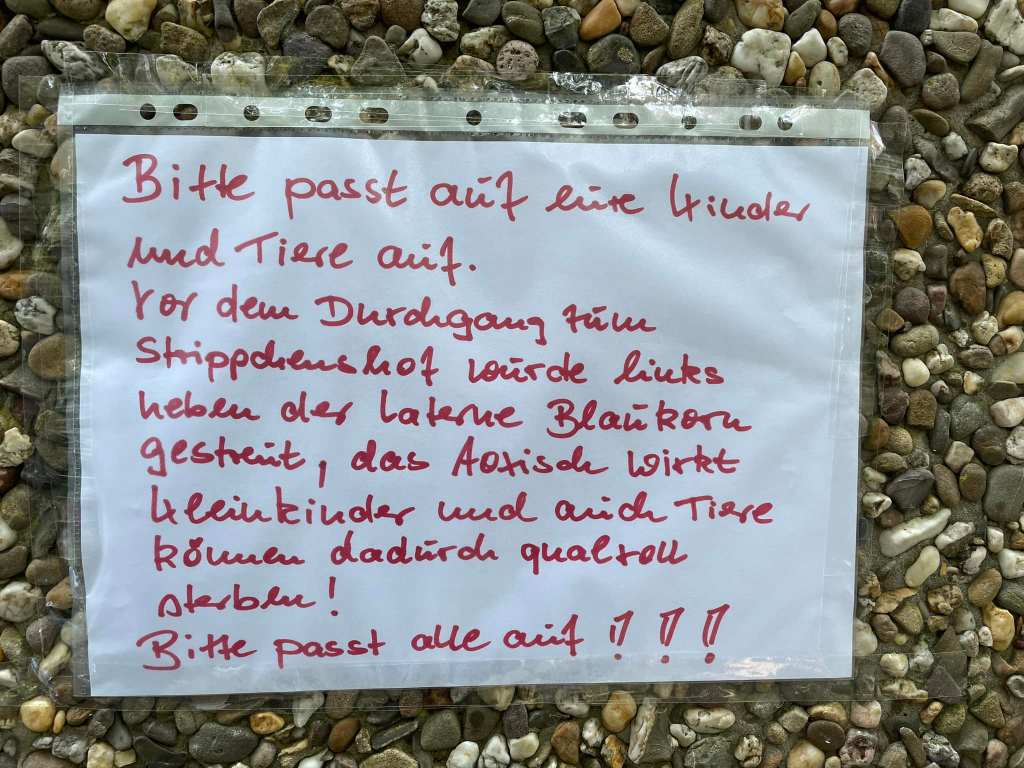 Bitte passt auf eure Kinder
und Tiere auf.
Vor dem Durchgang zum
Strippchenshof wurde links
neben der Laterne Blaukorn
gestreut, das Toxisch wirkt
Kleinkinder und auch Tiere
können dadurch qualvoll
sterben!
Bitte passt alle auf !!!